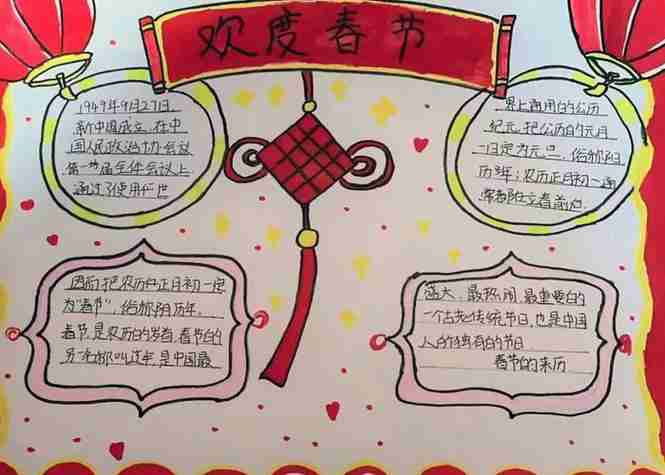 欢度春节
1949年9月27日,
新中国成立,在中
国人民政治协会议
第一次届全体会议上
通过了使用
界上通用的公历
纪元,把公历的元月
一日定为元旦,俗称阳
历年;农历正月初一通
常都在立春前后.
因而把农历的正月初一定
为“春节”,俗称阴历年.
春节,是农历的岁首,春节的
另一名称叫过年,是中国最
盛大、最热闹、最重要的
一个古老传统节日,也是中国
人的独有的节日
春节的来历